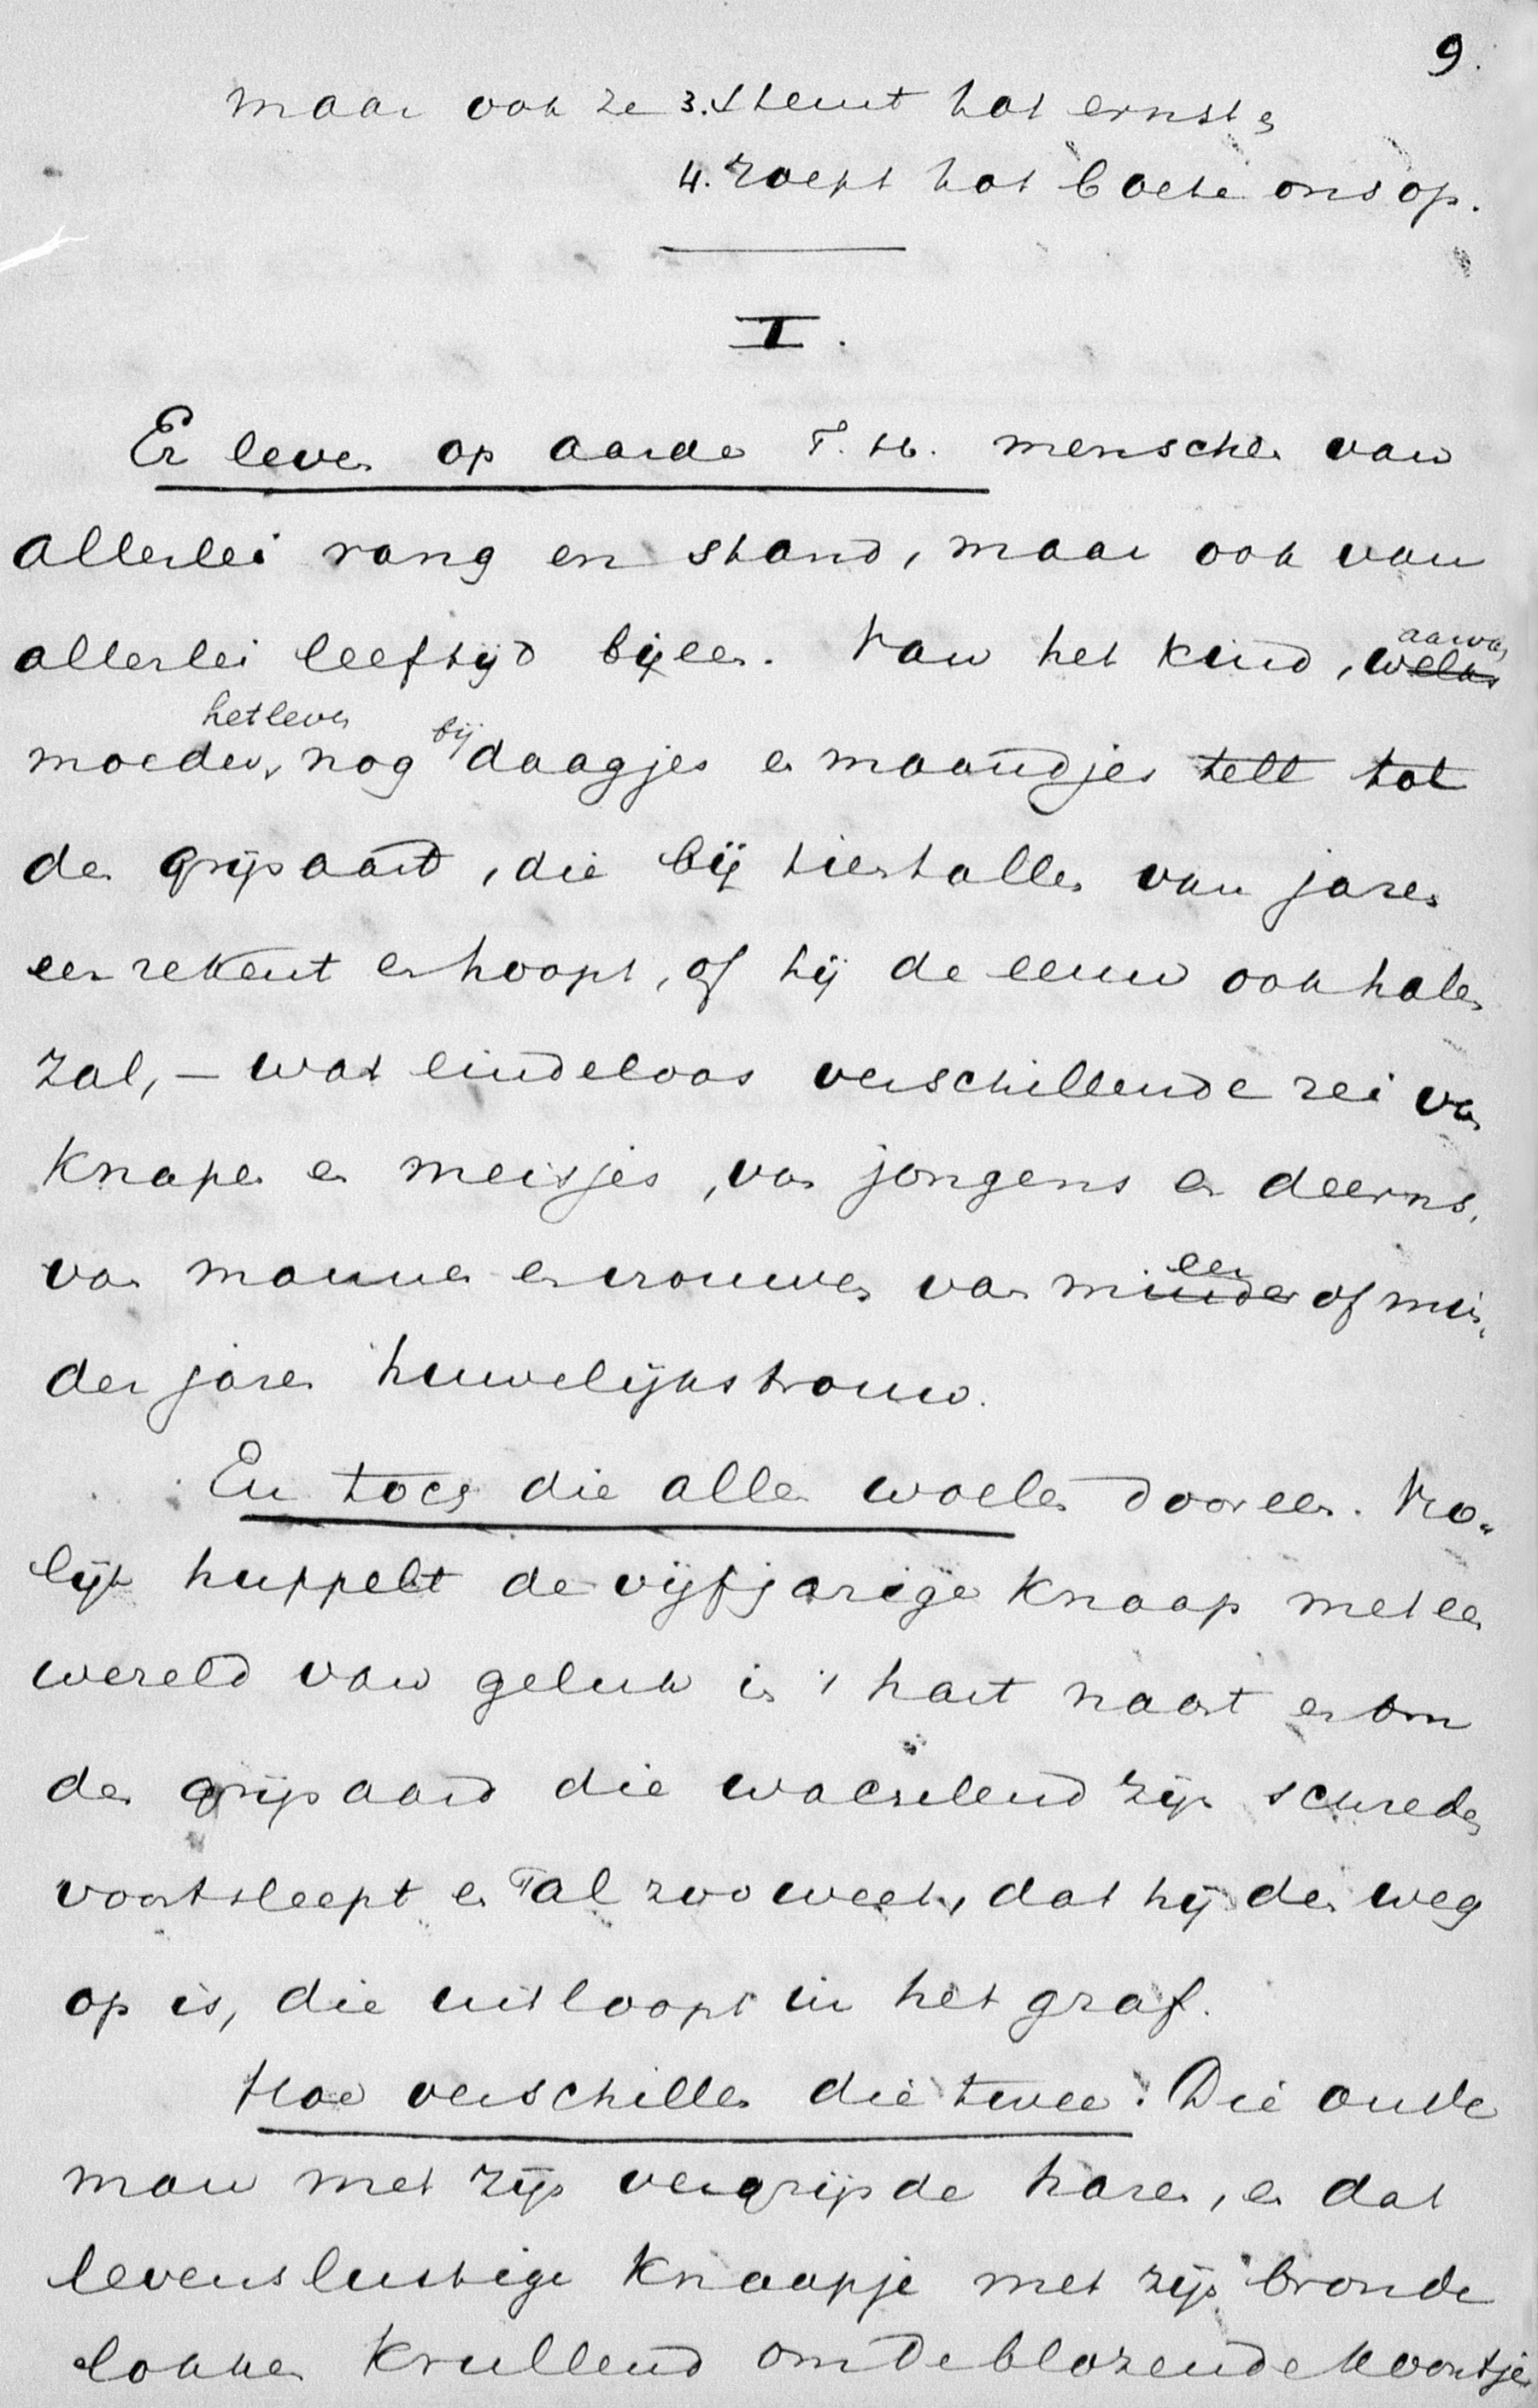 9.
maar ook ze 3. stemt tot ernst en
4. roept tot boete ons op.
I.
Er leven op aarde T. H. menschen van
allerlei rang en stand, maar ook van
allerlei leeftijd bijeen. Van het kind, welks aan wien
moeder, het leven nog bij daagjes en maandjes telt tot
den grijsaard, die bij tientallen van jaren
een rekent en hoopt, of hij de eeuw ook halen
zal, — wat eindeloos verschillende rei van
knapen en meisjes, van jongens en deerns,
van mannen en vrouwen van minder een of min,
der jaren huwelijkstrouw.
En toch die allen woelen dooreen. Vro-
lijk huppelt de vijfjarige knaap met een
wereld van geluk in 't hart naast en om
den grijsaard die waggelend zijn schreden
voortsleept en al zoo weet, dat hij den weg
op is, die uitloopt in het graf.
Hoe verschillen die twee! Die oude
man met zijn vergrijsde haren, en dat
levenslustige knaapje met zijn blonde
lokken krullend om de blozende koontjes